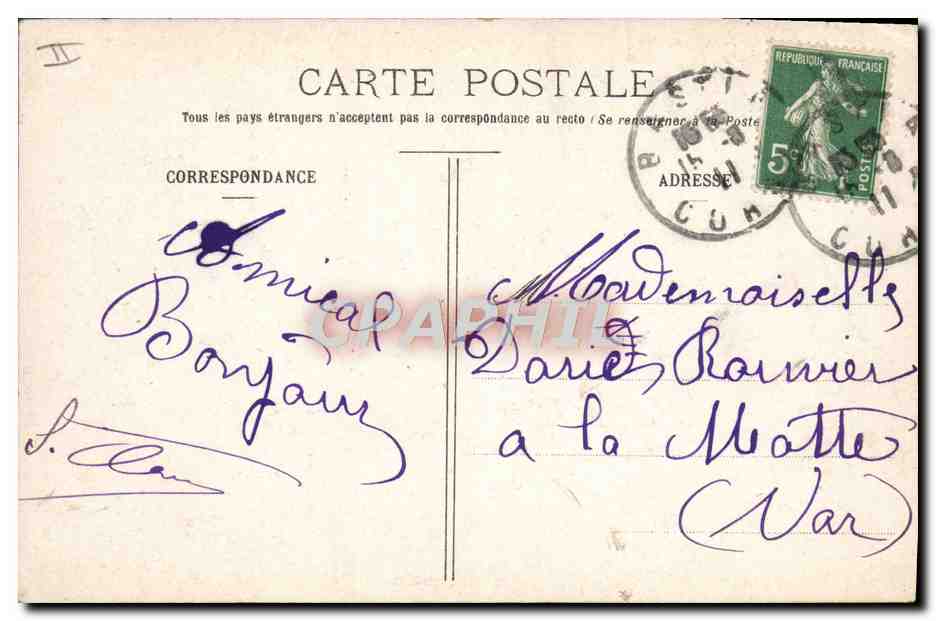 II
CARTE POSTALE
Tous les pays étrangers n'acceptent pas la correspondance au recto (Se renseigner à la Poste
CORRESPONDANCE
ADRESSE
REPUBLIQUE FRANÇAISE
5c
POSTES
BASTIA
15
11
CORSE
Amical
Bonjour
CPAPHIL
Mademoiselle
à la Motte
(Var)